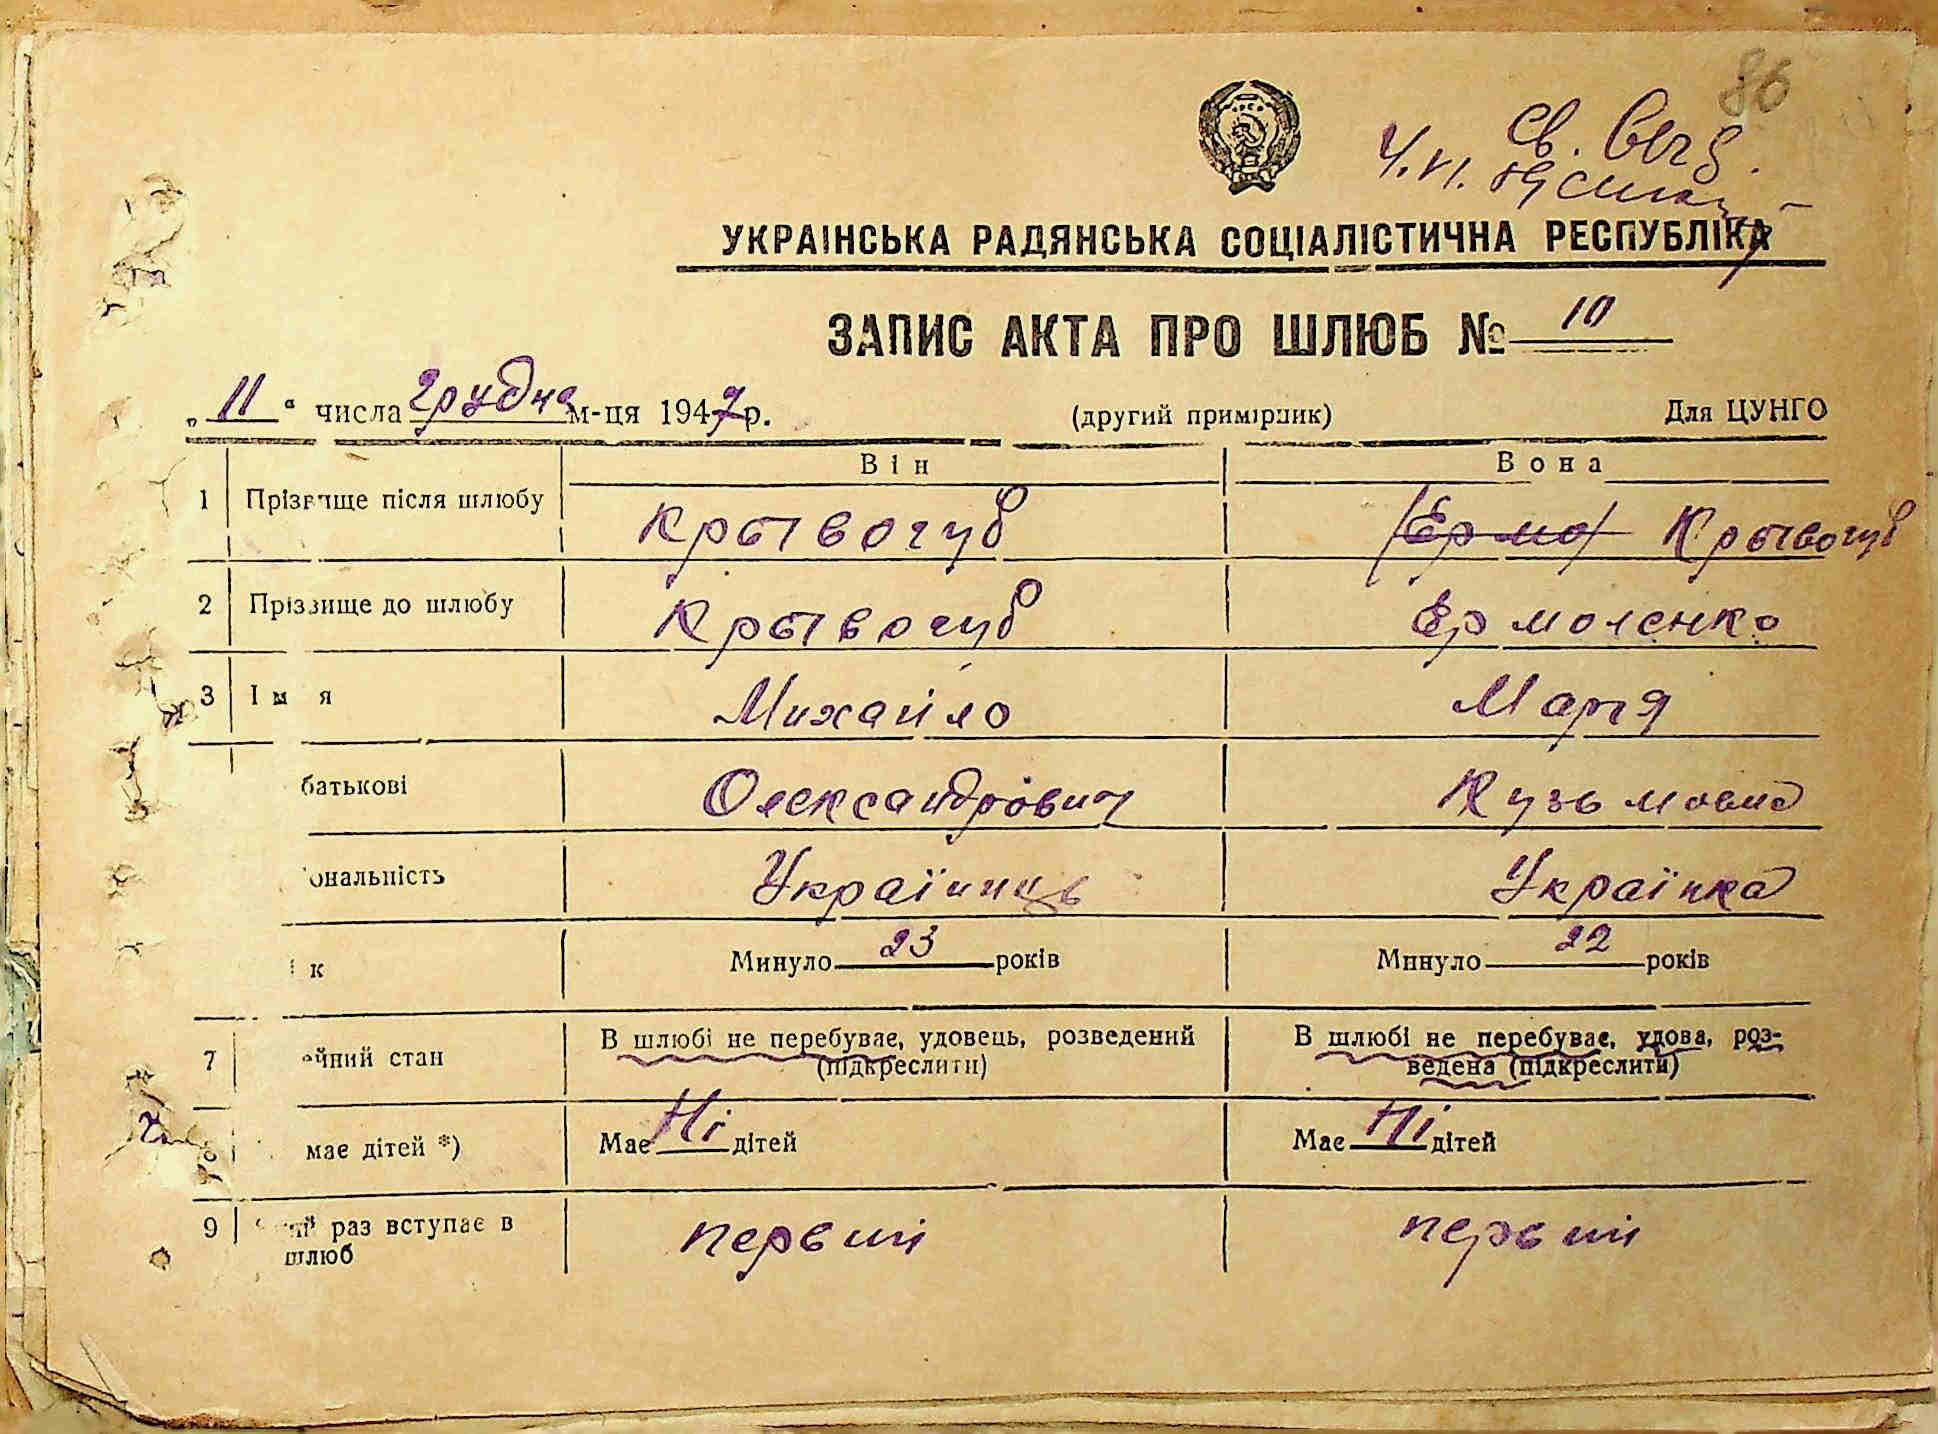 86
Св.
Ч.п.
УКРАЇНСЬКА РАДЯНСЬКА СОЦІАЛІСТИЧНА РЕСПУБЛІКА
ЗАПИС АКТА ПРО ШЛЮБ № 10
„11“ числа грудня м-ця 1947 р. (другий примірник) Для ЦУНГО
Він Вона
1 Прізвище після шлюбу Крывогуб (Ермо) Крывогуб
2 Прізвище до шлюбу Крывогуб Ермоленко
3 Ім я Михайло Марія
батькові Олександрович Кузьмовна
ональність Українець Українка
к Минуло 23 років Минуло 22 років
7 ейний стан В шлюбі не перебуває, удовець, розведений В шлюбі не перебуває, удова, роз-
(підкреслити) ведена (підкреслити)
має дітей *) Має Ні дітей Має Ні дітей
9 ий раз вступає в первий первий
шлюб